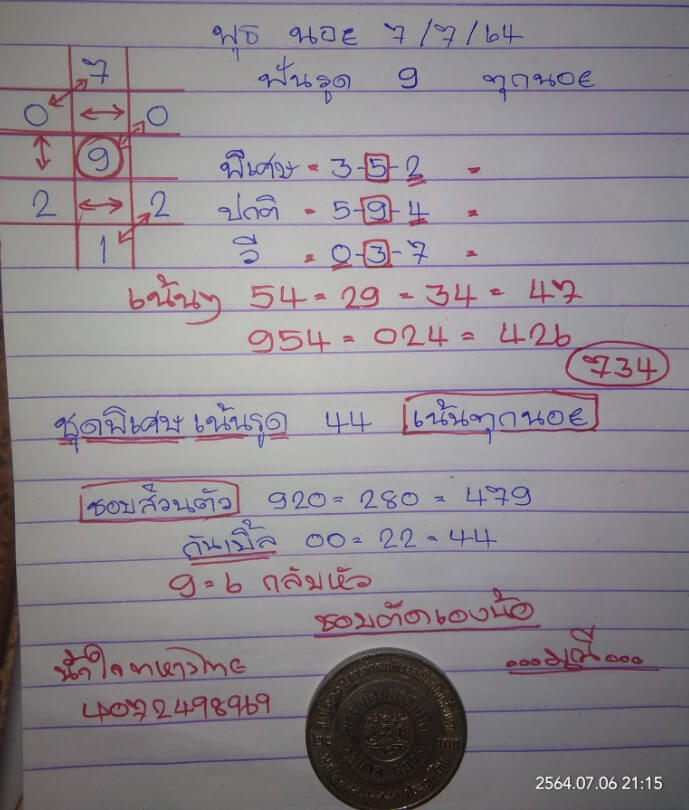 พุธ นอย 7/7/64
ฟันรูด 9 ทุกนอย
7
0 ↔ 0
9
2 ↔ 2
1
พิเศษ = 3-5-2 =
ปกติ = 5-9-4 =
วี = 0-3-7 =
เน้นๆ 54 = 29 = 34 = 47
954 = 024 = 426
734
ชุดพิเศษ เน้นรูด 44 เน้นทุกนอย
ชอบส่วนตัว 920 = 280 = 479
กันเบิ้ล 00 = 22 = 44
9 = 6 กลับหัว
ชอบตัดเองน้อ
น้ำใจทหารไทย
4072498969
2564.07.06 21:15